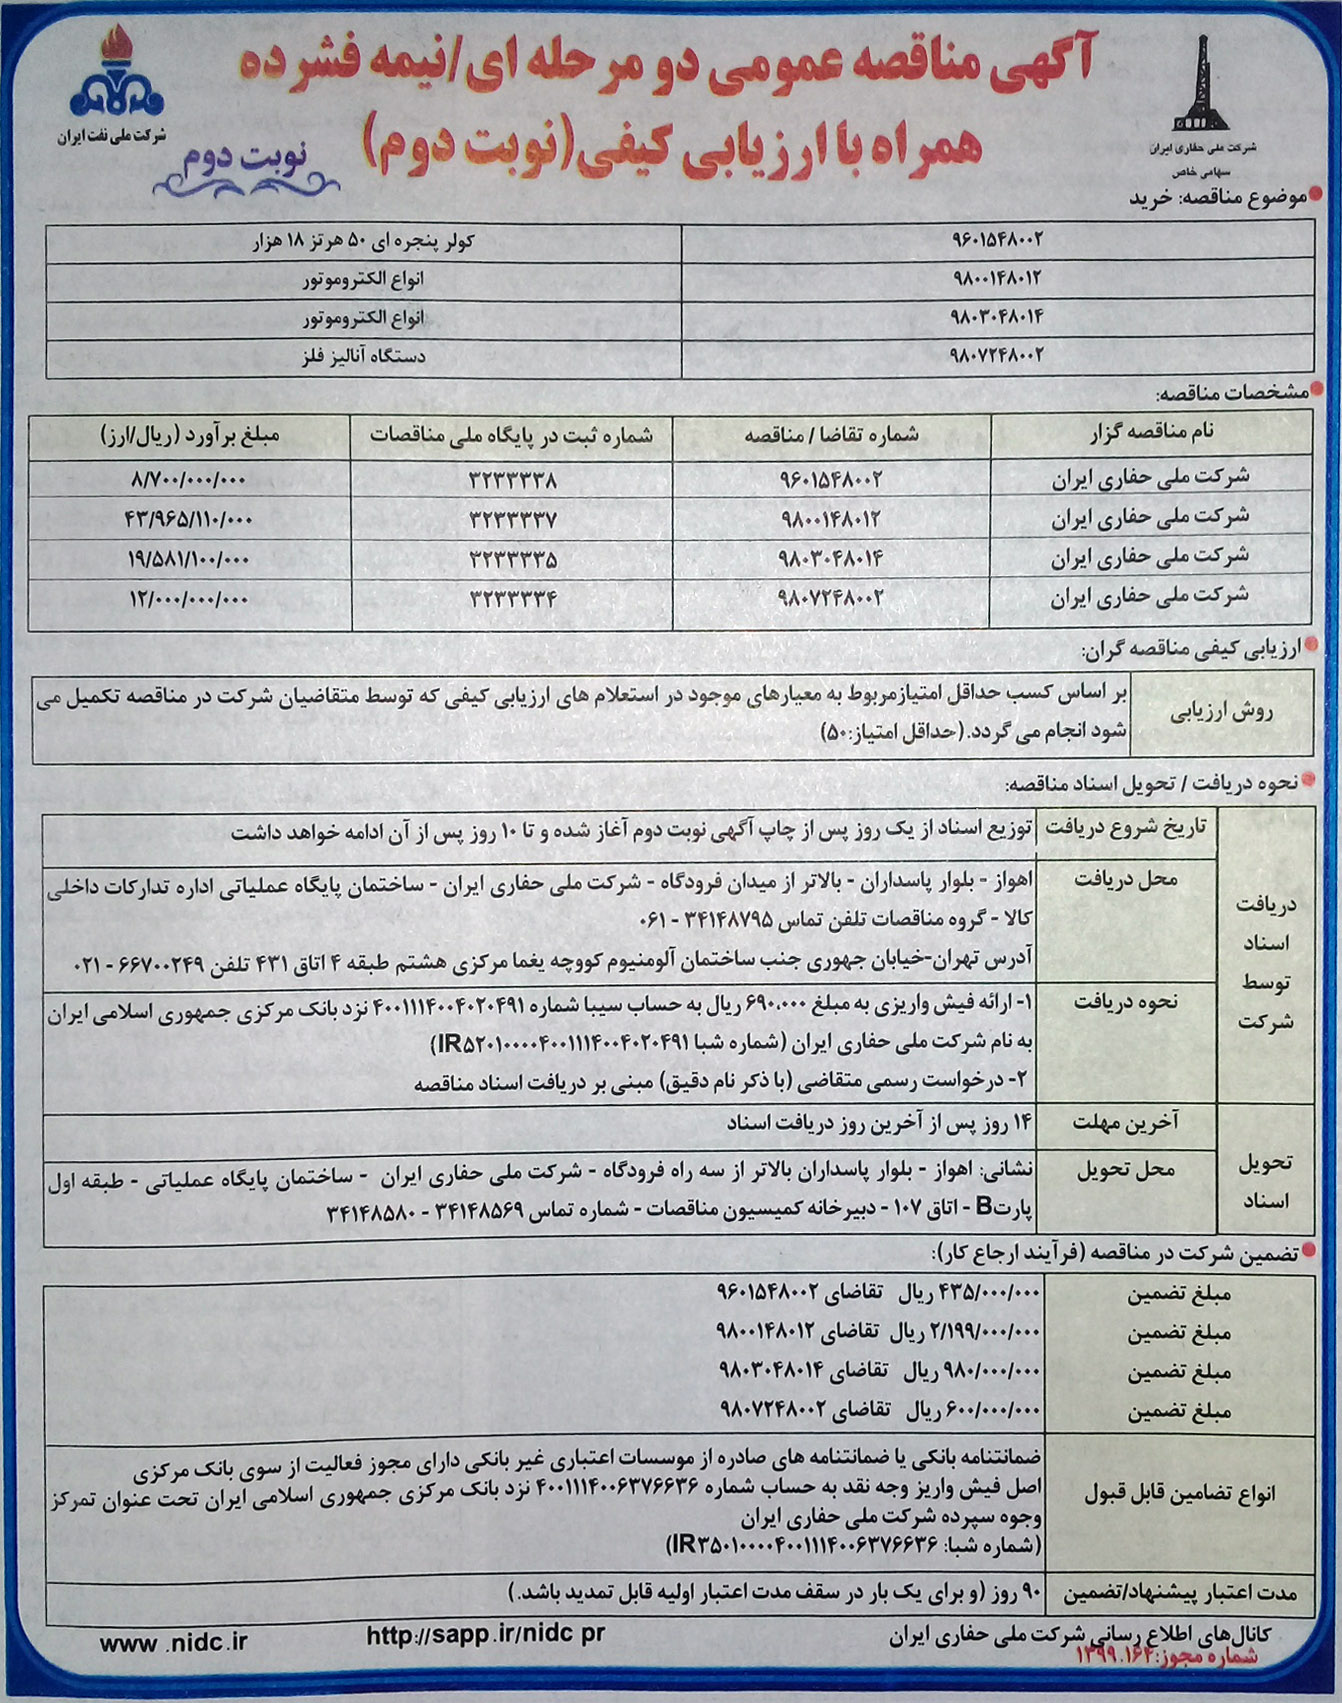 آگهی مناقصه عمومی دو مرحله ای/نیمه فشرده
همراه با ارزیابی کیفی(نوبت دوم)
شرکت ملی نفت ایران
نوبت دوم
شرکت ملی حفاری ایران
سهامی خاص
موضوع مناقصه: خرید
۹۶۰۱۵۴۸۰۰۲ کولر پنجره ای ۵۰ هرتز ۱۸ هزار
۹۸۰۰۱۴۸۰۱۲ انواع الکتروموتور
۹۸۰۳۰۴۸۰۱۴ انواع الکتروموتور
۹۸۰۷۲۴۸۰۰۲ دستگاه آنالیز فلز
مشخصات مناقصه:
نام مناقصه گزار شماره تقاضا / مناقصه شماره ثبت در پایگاه ملی مناقصات مبلغ برآورد (ریال/ارز)
شرکت ملی حفاری ایران ۹۶۰۱۵۴۸۰۰۲ ۳۲۳۳۳۳۸ ۸/۷۰۰/۰۰۰/۰۰۰
شرکت ملی حفاری ایران ۹۸۰۰۱۴۸۰۱۲ ۳۲۳۳۳۳۷ ۴۳/۹۶۵/۱۱۰/۰۰۰
شرکت ملی حفاری ایران ۹۸۰۳۰۴۸۰۱۴ ۳۲۳۳۳۳۵ ۱۹/۵۸۱/۱۰۰/۰۰۰
شرکت ملی حفاری ایران ۹۸۰۷۲۴۸۰۰۲ ۳۲۳۳۳۳۴ ۱۲/۰۰۰/۰۰۰/۰۰۰
ارزیابی کیفی مناقصه گران:
روش ارزیابی
بر اساس کسب حداقل امتیازمربوط به معیارهای موجود در استعلام های ارزیابی کیفی که توسط متقاضیان شرکت در مناقصه تکمیل می
شود انجام می گردد.(حداقل امتیاز:۵۰)
نحوه دریافت / تحویل اسناد مناقصه:
دریافت
اسناد
توسط
شرکت
تاریخ شروع دریافت توزیع اسناد از یک روز پس از چاپ آگهی نوبت دوم آغاز شده و تا ۱۰ روز پس از آن ادامه خواهد داشت
محل دریافت اهواز - بلوار پاسداران - بالاتر از میدان فرودگاه - شرکت ملی حفاری ایران - ساختمان پایگاه عملیاتی اداره تدارکات داخلی
کالا - گروه مناقصات تلفن تماس ۳۴۱۴۸۷۹۵ - ۰۶۱
آدرس تهران-خیابان جهوری جنب ساختمان آلومنیوم کووچه یغما مرکزی هشتم طبقه ۴ اتاق ۴۳۱ تلفن ۶۶۷۰۰۲۴۹ - ۰۲۱
نحوه دریافت ۱- ارائه فیش واریزی به مبلغ ۶۹۰.۰۰۰ ریال به حساب سیبا شماره ۴۰۰۱۱۱۴۰۰۴۰۲۰۴۹۱ نزد بانک مرکزی جمهوری اسلامی ایران
به نام شرکت ملی حفاری ایران (شماره شبا IR۵۲۰۱۰۰۰۰۴۰۰۱۱۱۴۰۰۴۰۲۰۴۹۱)
۲- درخواست رسمی متقاضی (با ذکر نام دقیق) مبنی بر دریافت اسناد مناقصه
تحویل
اسناد
آخرین مهلت ۱۴ روز پس از آخرین روز دریافت اسناد
محل تحویل نشانی: اهواز - بلوار پاسداران بالاتر از سه راه فرودگاه - شرکت ملی حفاری ایران - ساختمان پایگاه عملیاتی - طبقه اول
پارتB - اتاق ۱۰۷ - دبیرخانه کمیسیون مناقصات - شماره تماس ۳۴۱۴۸۵۶۹ - ۳۴۱۴۸۵۸۰
تضمین شرکت در مناقصه (فرآیند ارجاع کار):
مبلغ تضمین ۴۳۵/۰۰۰/۰۰۰ ریال تقاضای ۹۶۰۱۵۴۸۰۰۲
مبلغ تضمین ۲/۱۹۹/۰۰۰/۰۰۰ ریال تقاضای ۹۸۰۰۱۴۸۰۱۲
مبلغ تضمین ۹۸۰/۰۰۰/۰۰۰ ریال تقاضای ۹۸۰۳۰۴۸۰۱۴
مبلغ تضمین ۶۰۰/۰۰۰/۰۰۰ ریال تقاضای ۹۸۰۷۲۴۸۰۰۲
انواع تضامین قابل قبول
ضمانتنامه بانکی یا ضمانتنامه های صادره از موسسات اعتباری غیر بانکی دارای مجوز فعالیت از سوی بانک مرکزی
اصل فیش واریز وجه نقد به حساب شماره ۴۰۰۱۱۱۴۰۰۶۳۷۶۶۳۶ نزد بانک مرکزی جمهوری اسلامی ایران تحت عنوان تمرکز
وجوه سپرده شرکت ملی حفاری ایران
(شماره شبا: IR۳۵۰۱۰۰۰۰۴۰۰۱۱۱۴۰۰۶۳۷۶۶۳۶)
مدت اعتبار پیشنهاد/تضمین ۹۰ روز (و برای یک بار در سقف مدت اعتبار اولیه قابل تمدید باشد.)
کانال‌های اطلاع رسانی شرکت ملی حفاری ایران http://sapp.ir/nidc pr www .nidc.ir
شماره مجوز:۱۳۹۹.۱۶۴